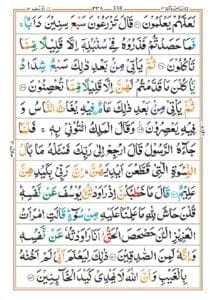 لَعَلَّهُمْ يَعْلَمُوْنَ ۝ قَالَ تَزْرَعُوْنَ سَبْعَ سِنِيْنَ دَاَبًا ۚ
فَمَا حَصَدْتُّمْ فَذَرُوْهُ فِيْ سُنْۢبُلِهٖٓ اِلَّا قَلِيْلًا مِّمَّا
تَاْكُلُوْنَ ۝ ثُمَّ يَاْتِيْ مِنْۢ بَعْدِ ذٰلِكَ سَبْعٌ شِدَادٌ
يَّاْكُلْنَ مَا قَدَّمْتُمْ لَهُنَّ اِلَّا قَلِيْلًا مِّمَّا تُحْصِنُوْنَ ۝
ثُمَّ يَاْتِيْ مِنْۢ بَعْدِ ذٰلِكَ عَامٌ فِيْهِ يُغَاثُ النَّاسُ وَ
فِيْهِ يَعْصِرُوْنَ ۝ وَقَالَ الْمَلِكُ ائْتُوْنِيْ بِهٖ ۚ فَلَمَّا
جَآءَهُ الرَّسُوْلُ قَالَ ارْجِعْ اِلٰى رَبِّكَ فَسْـَٔلْهُ مَا بَالُ
النِّسْوَةِ الّٰتِيْ قَطَّعْنَ اَيْدِيَهُنَّ ۚ اِنَّ رَبِّيْ بِكَيْدِهِنَّ
عَلِيْمٌ ۝ قَالَ مَا خَطْبُكُنَّ اِذْ رَاوَدْتُّنَّ يُوْسُفَ عَنْ نَّفْسِهٖ ۚ
قُلْنَ حَاشَ لِلّٰهِ مَا عَلِمْنَا عَلَيْهِ مِنْ سُوْٓءٍ ۚ قَالَتِ امْرَاَتُ
الْعَزِيْزِ الْـٰٔنَ حَصْحَصَ الْحَقُّ ۫ اَنَا رَاوَدْتُّهٗ عَنْ نَّفْسِهٖ
وَاِنَّهٗ لَمِنَ الصّٰدِقِيْنَ ۝ ذٰلِكَ لِيَعْلَمَ اَنِّيْ لَمْ اَخُنْهُ
بِالْغَيْبِ وَاَنَّ اللّٰهَ لَا يَهْدِيْ كَيْدَ الْخَآئِنِيْنَ ۝